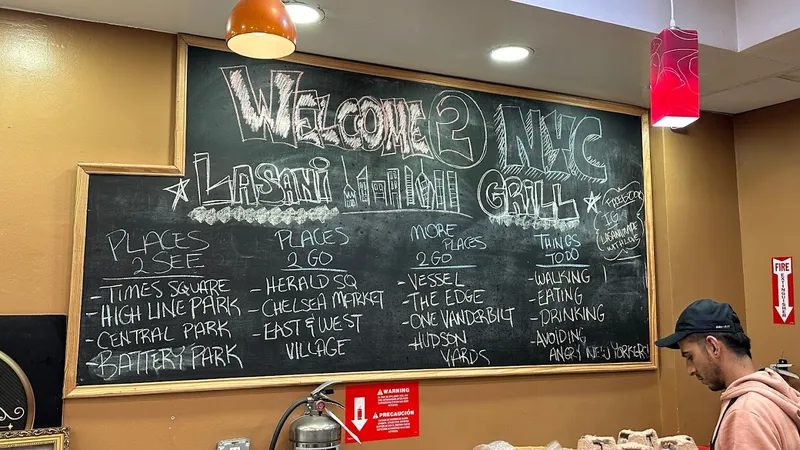 WELCOME 2 NYC
LASANI GRILL
FACEBOOK
IG
PLACES
2 SEE
- TIMES SQUARE
- HIGH LINE PARK
- CENTRAL PARK
- BATTERY PARK
PLACES
2 GO
- HERALD SQ
- CHELSEA MARKET
- EAST & WEST
VILLAGE
MORE
PLACES
2 GO
- VESSEL
- THE EDGE
- ONE VANDERBILT
- HUDSON
YARDS
THINGS
TO DO
- WALKING
- EATING
- DRINKING
- AVOIDING
ANGRY NEW YORKERS!
FIRE
EXTINGUISHER
WARNING
PRECAUCIÓN